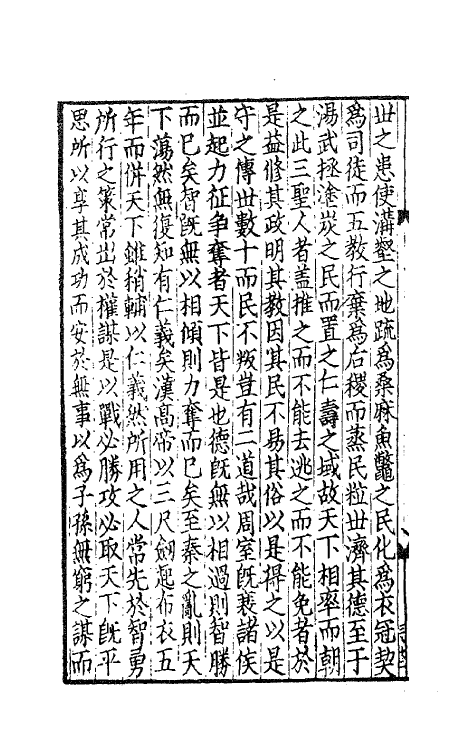 世之患使溝壑之地疏為桑麻魚鼈之民化為衣冠契
為司徒而五教行棄為后稷而蒸民粒世濟其德至于
湯武拯塗炭之民而置之仁壽之域故天下相率而朝
之此三聖人者蓋推之而不能去逃之而不能免者於
是益修其政明其教因其民不易其俗以是得之以是
守之傳世數十而民不叛豈有二道哉周室既衰諸侯
並起力征争奪者天下皆是也德既無以相過則智勝
而已矣智既無以相傾則力奪而已矣至秦之亂則天
下蕩然無復知有仁義矣漢高帝以三尺劒起布衣五
年而併天下雖稍輔以仁義然所用之人常先於智勇
所行之策常出於權謀是以戰必勝攻必取天下既平
思所以享其成功而安於無事以為子孫無窮之謀而